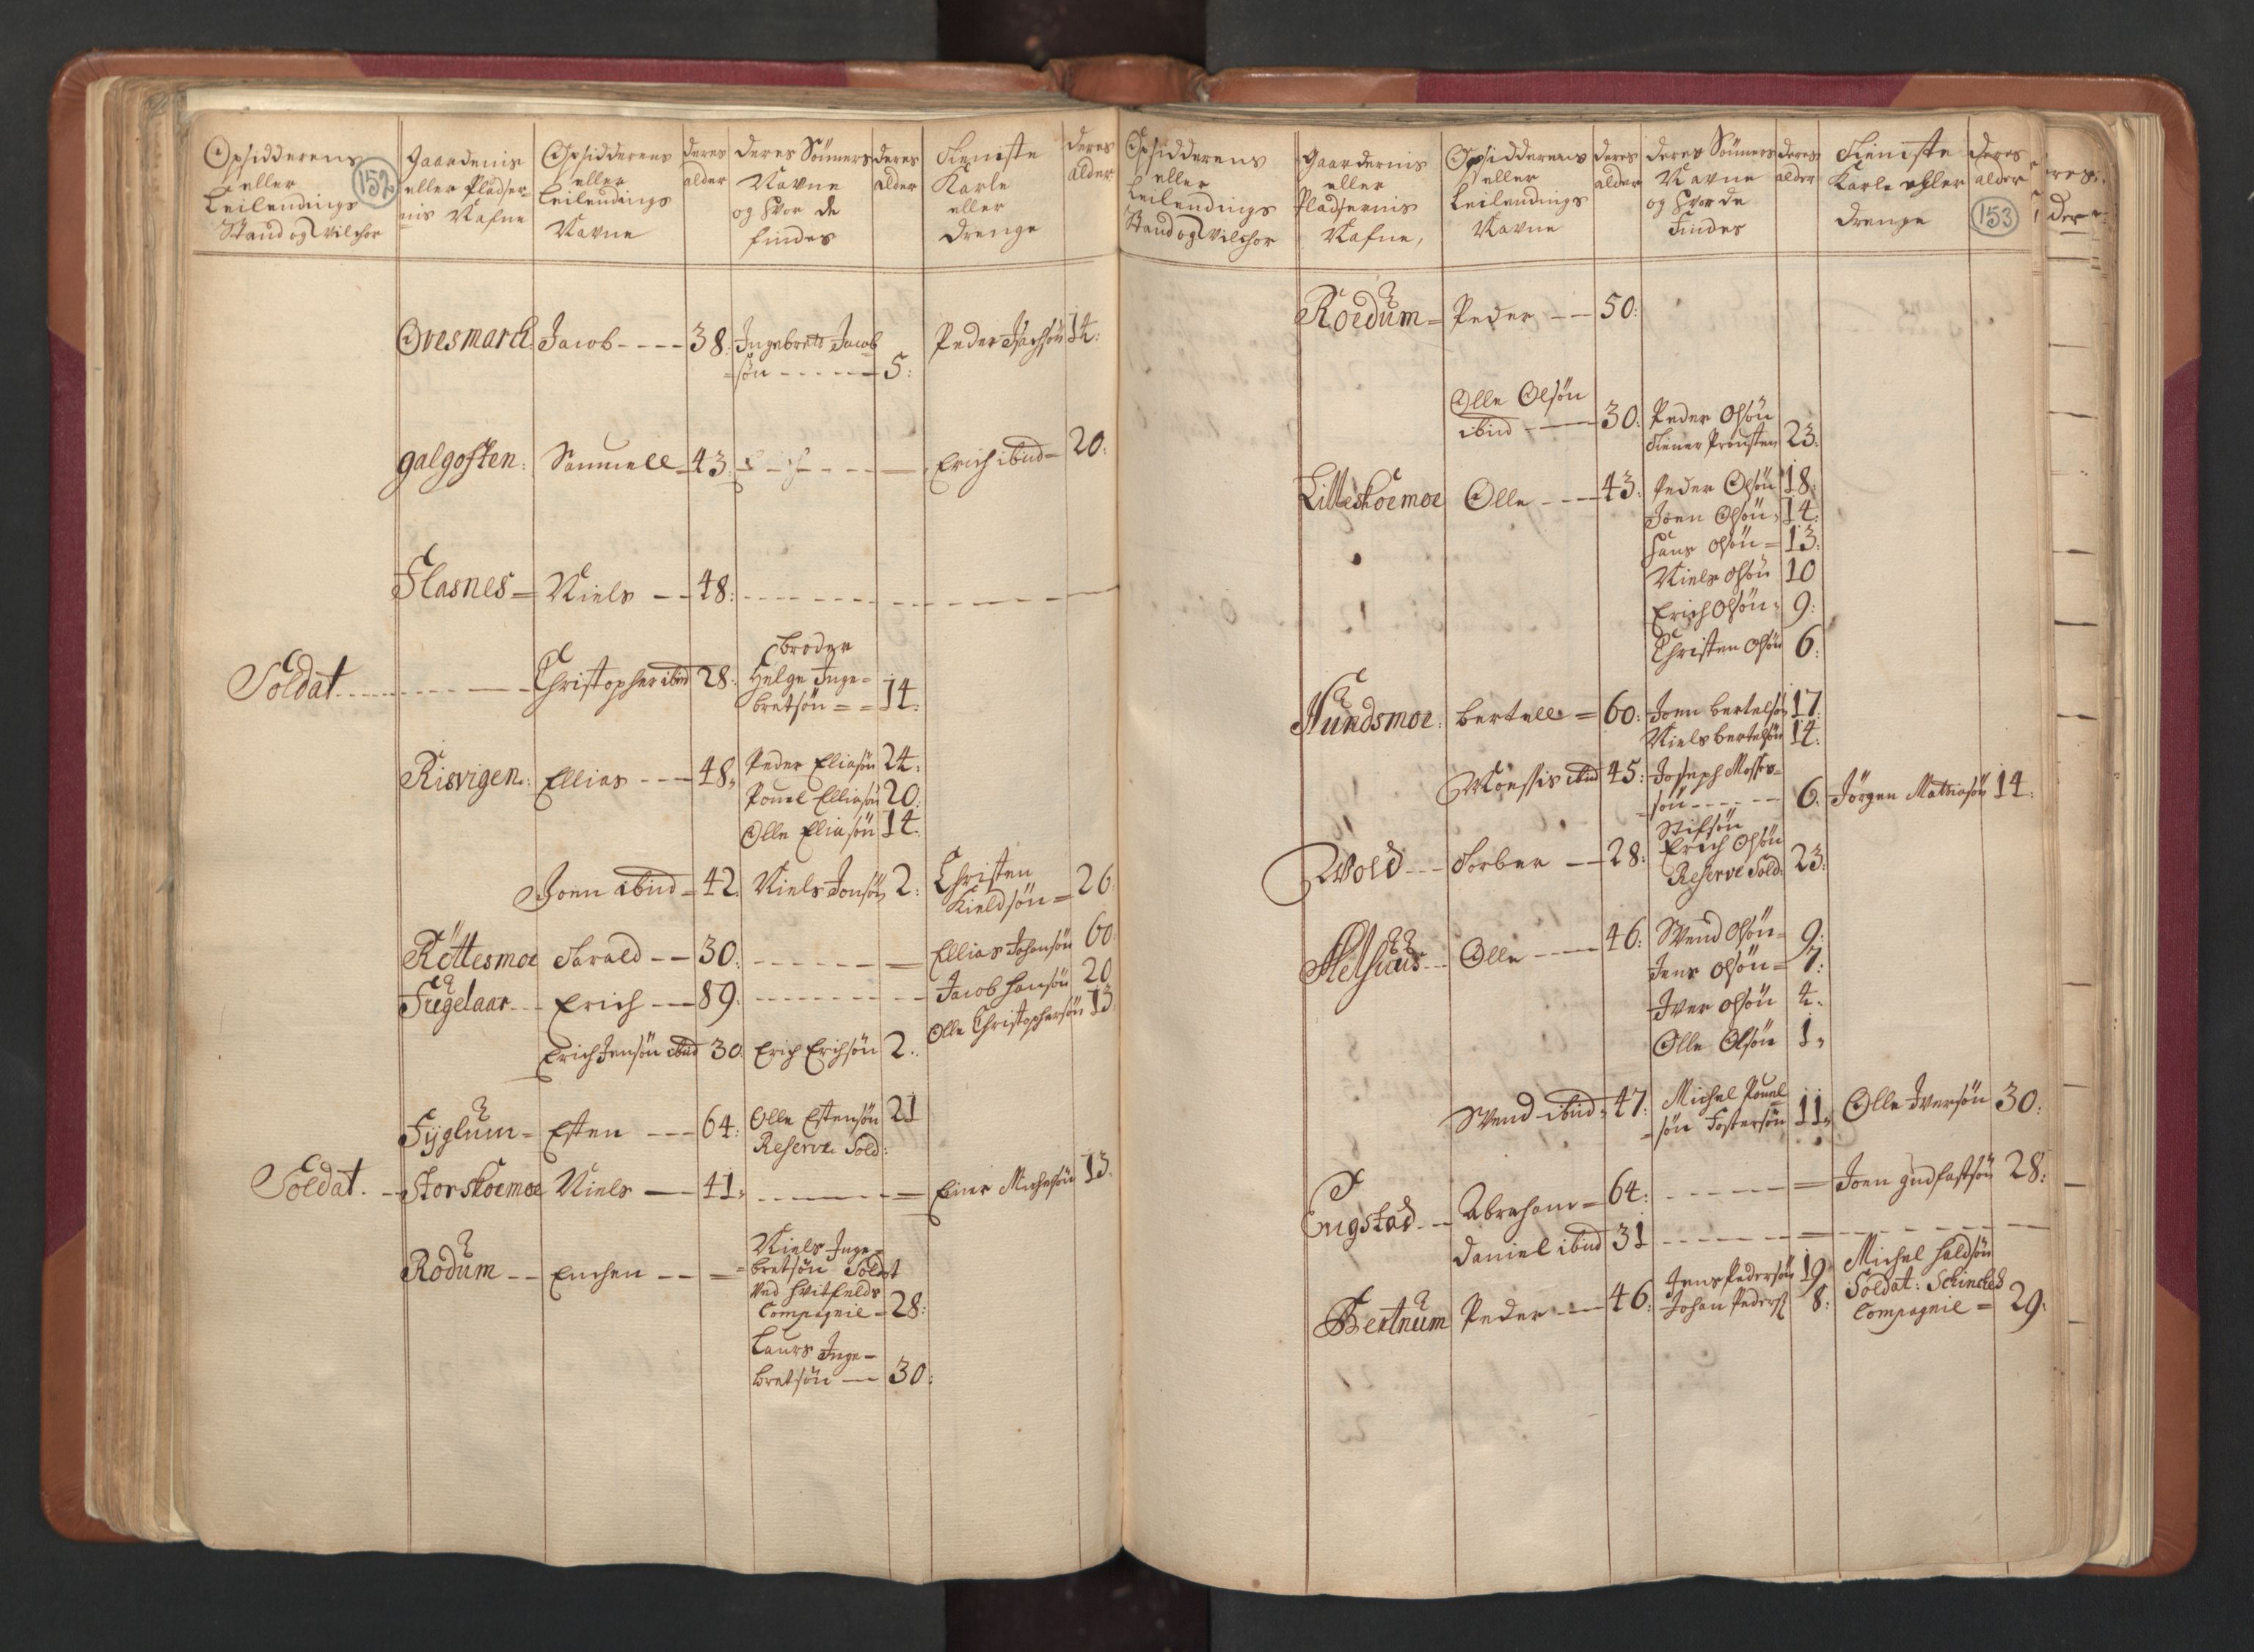 Opsidderens eller Leilendings Stand og Vilchor
152
Gaardenis eller Pladsernis Nafne
Opsidderens eller Leilendings Navne
deres alder
deres Sönners Navne og hvor de findes
deres alder
Tieniste Karle eller drenge
deres alder
Ovesmarch Jacob - - - - 38: Ingebrett Jacob
=søn - - - - - 5:
Peder Isachsøn 14:
galgosten: Samuell 43: - - - - Erich ibid = 20:
Flasnes = Niels - - 48: - - - - - -
Soldat - - - - - - Christopher ibid 28: broder
Helge Inge=
bretsøn = = 14:
Risvigen: Ellias - - - 48, Peder Eliasøn 24:
Pouel Elliasøn 20:
Olle Eliasøn 14:
Joen ibid = 42. Niels Jonsøn 2: Christen
Kieldsøn = 26
Röttesmoe Harald - - 30: - - - - - = Ellias Johansøn 60
Fugelaar - - Erich - - 89. - - - - - - Jacob Hansøn 20
Olle Christophersøn 13
Erich Jensøn ibid 30: Erich Erichsøn 2.
Fyglum = Esten - - - 64: Olle Estensøn 21
Reserve Sold:
Soldat. - Storskoemoe Niels - - 41, - - - - - = Einer Michelsøn 13.
Rodum - - Enchen - - = Niels Inge=
=bretsøn Soldat
Ved Hvitfelds
Compagnie = 28:
Laurs Inge=
bretsøn - - 30:
Opsidderens eller Leilendings Stand og Vilchor
Gaardernis eller Pladsernis Nafne,
Opsidderens eller Leilendings Navne
deres alder
deres Sönners Navne og hvor de Findes
deres alder
Tieniste Karle eller drenge
deres alder
153
Roedum = Peder - - 50:
Olle Olsön
ibid - - - 30: Peder Olsön
tiener Prousten 23:
Litleskoemoe Olle - - - 43: Peder Olsøn 18:
Joen Olsøn, 14:
Hans Olsøn = 13:
Niels Olsøn 10
Erich Olsøn, 9:
Christen Olsøn 6:
Hundsmoe: bertell = 60: Joen bertelsøn 17.
Niels bertelsøn 14:
Moessis ibid 45: Joseph Moses=
=søn - - - - - 6. Jørgen Mathiasøn 14:
Stifsøn
Wold - - - Torber - - 28: Erich Olsøn
Reserve Sold: 23:
Olle - - - 46: Svend Olsøn = 9:
Jens Olsøn = 7:
Iver Olsøn 4.
Olle Olsøn 1,
Svend ibid, 47: Michel Pouel
=søn Fostersøn 11, Olle Iversøn 30:
Engstad - - Abraham = 64: - - - - = Joen gudfastsøn 28:
Daniel ibid 31 - - - - - -
Bertnum Peder - - - 46: Jens Pedersøn 19. Michel Haldsøn
Johan Peders: 8: Soldat: Schinckels
Compagnie = 29.